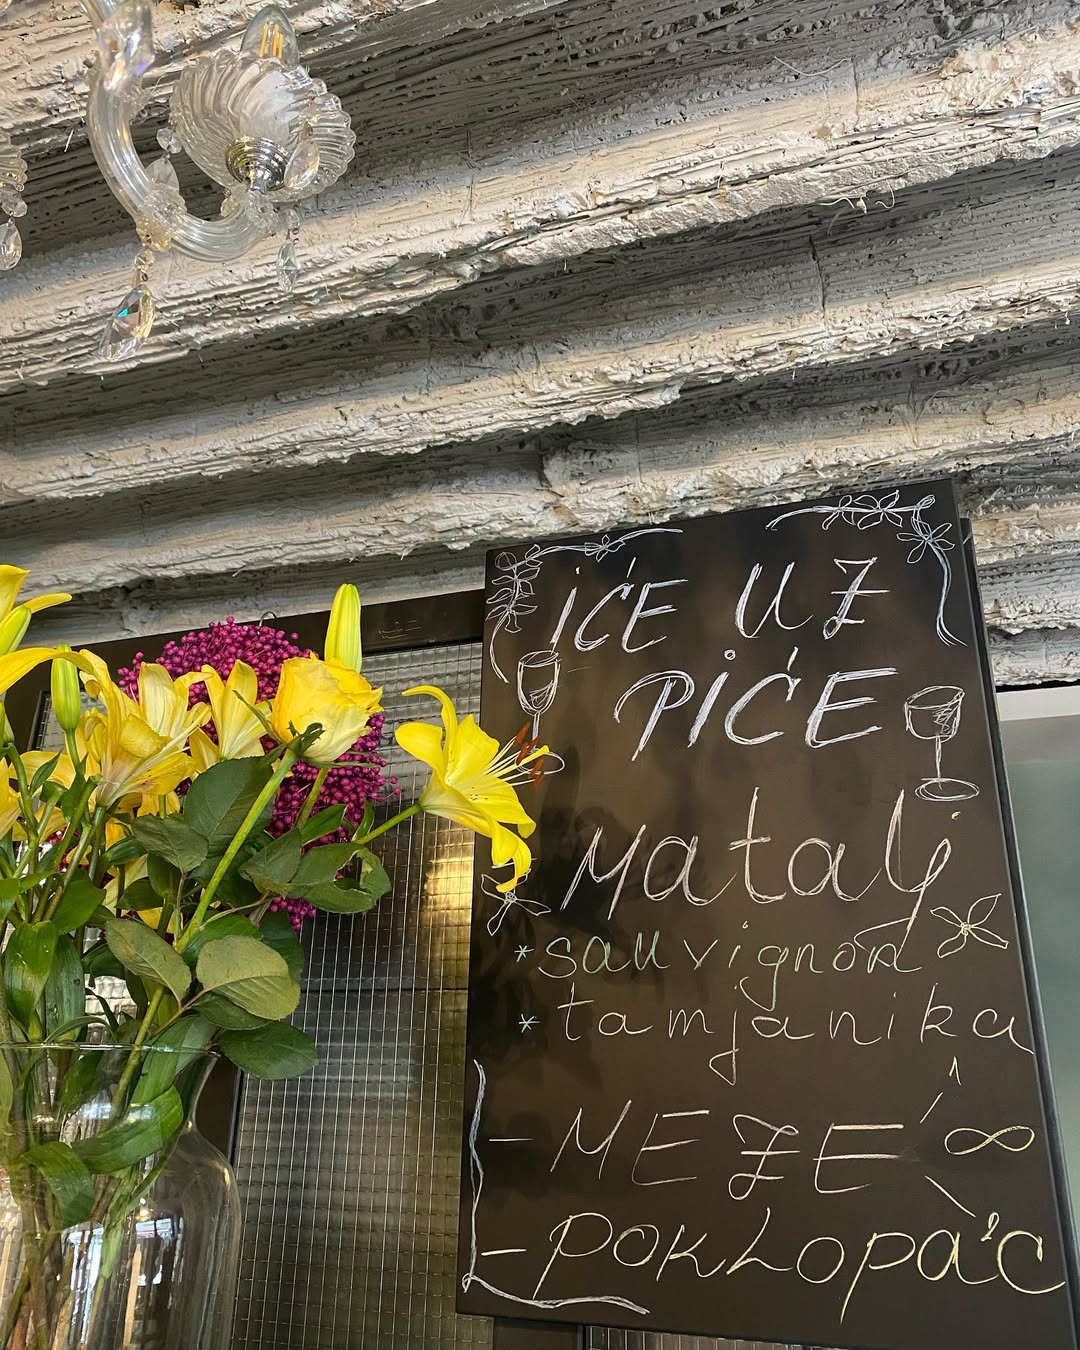 iĆE UZ
PiĆE
Matalj
*sauvignon
*tamjanika
- MEZE ∞
- POKLOPAC